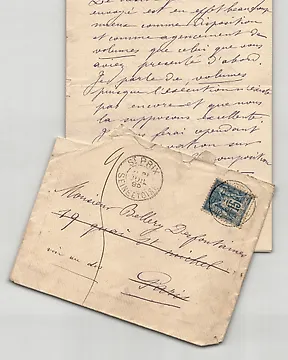 envoyé est en effet beaucoup
mieux comme disposition
et comme agencement de
volumes que celui que vous
aviez présenté d'abord.
Je parle de volumes
puisque l'exécution n'existe
pas encore et que nous
la supposons excellente.
ferai cependant
sur
composition
ST PRIX
JUIL
85
SEINE-ET-OISE
Monsieur Bellery Desfontaines
19 quai St Michel
Paris
15